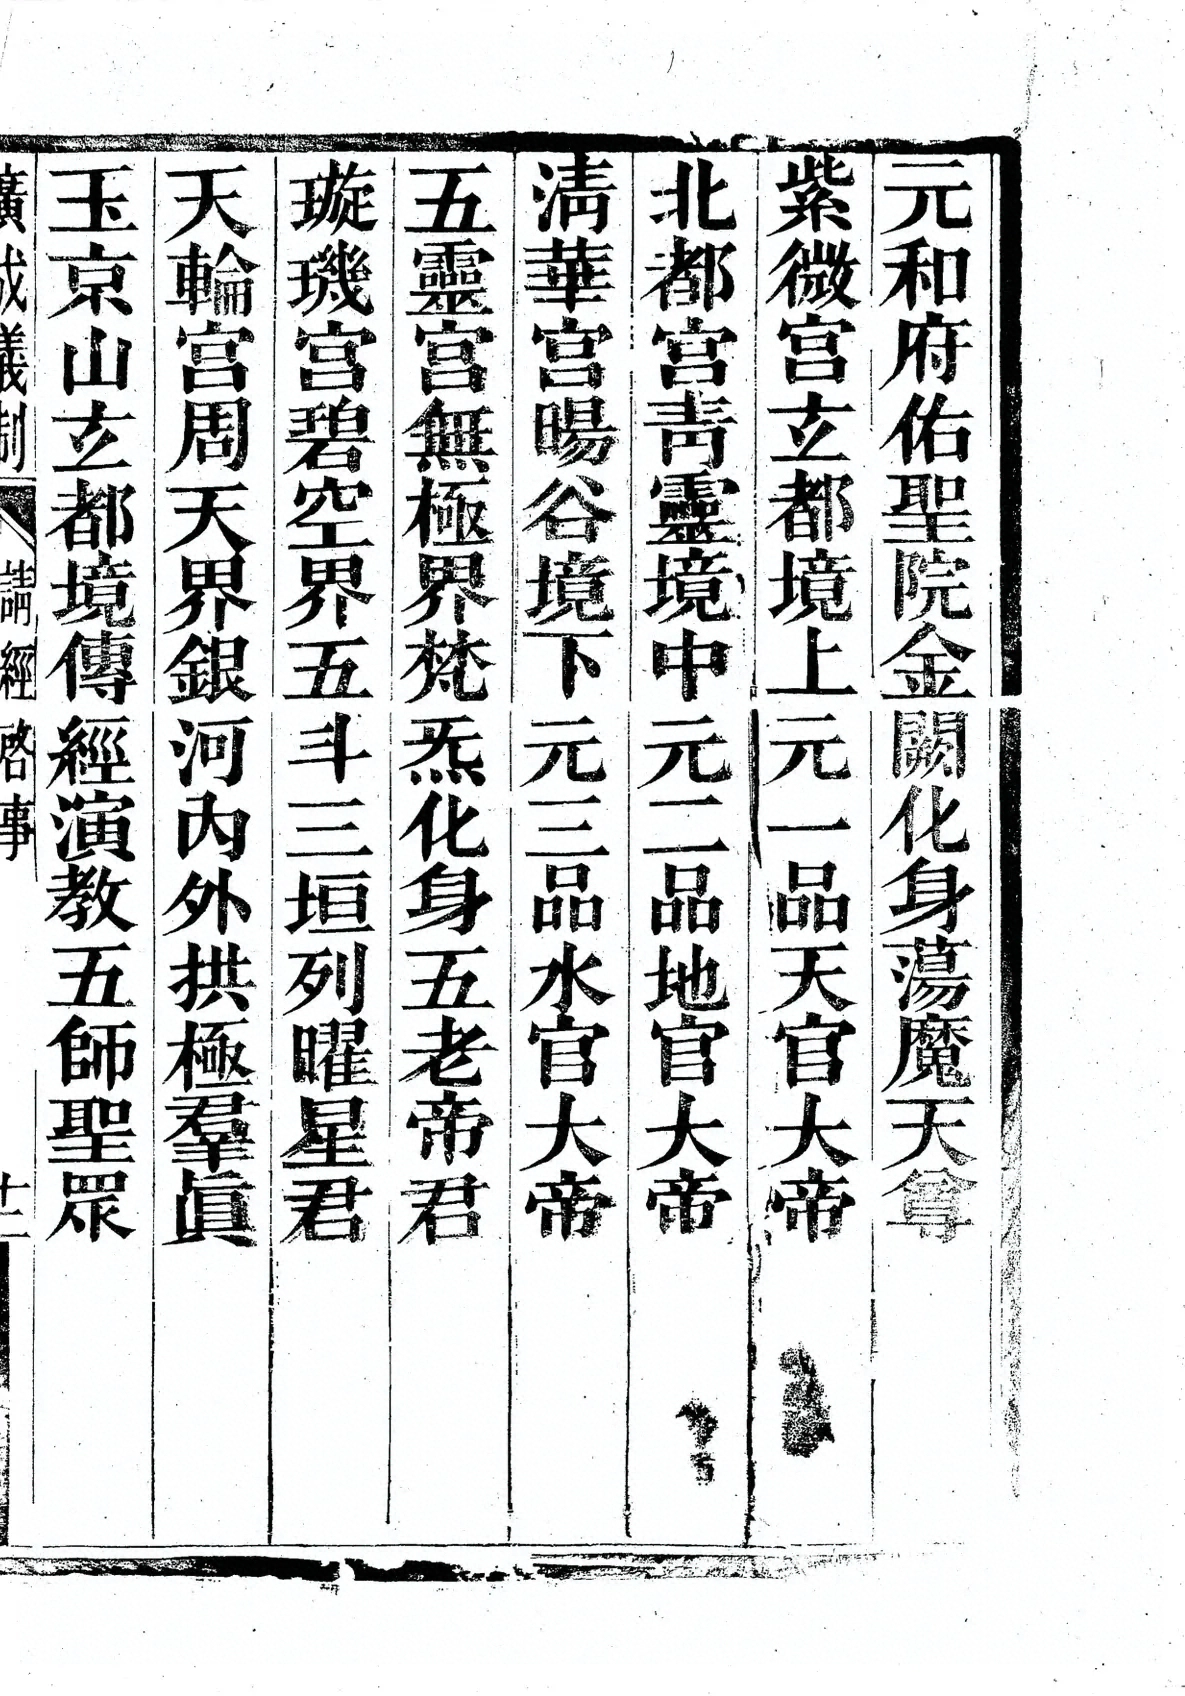 元和府佑聖院金闕化身蕩魔天尊
紫微宮玄都境上元一品天官大帝
北都宮靑靈境中元二品地官大帝
淸華宮暘谷境下元三品水官大帝
五靈宮無極界梵炁化身五老帝君
璇璣宮碧空界五斗三垣列曜星君
天輪宮周天界銀河內外拱極羣眞
玉京山玄都境傳經演教五師聖眾
廣成儀制 請經啓事 十二